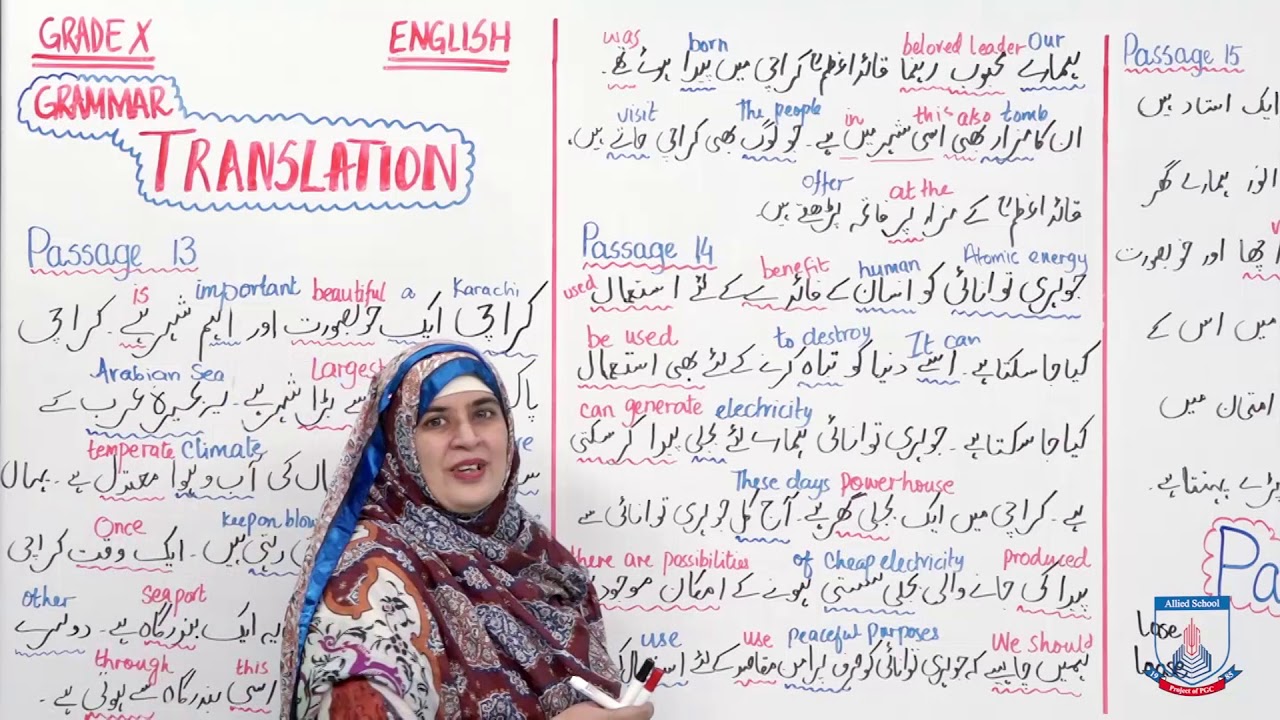 GRADE X
ENGLISH
GRAMMAR
TRANSLATION
Passage 13
is important beautiful a Karachi
کراچی ایک خوبصورت اور اہم شہر ہے۔ کراچی
Arabian Sea Largest
سے بڑا شہر ہے۔ یہ بحیرۂ عرب کے
temperate Climate
کی آب و ہوا معتدل ہے۔ یہاں
Once keep on
رہتی ہیں۔ ایک وقت کراچی
other seaport
یہ ایک بندرگاہ ہے۔ دوسرے
through this
اسی بندرگاہ سے ہوتی ہے۔
was born beloved leader Our
ہمارے محبوب رہنما قائداعظمؒ کراچی میں پیدا ہوئے تھے۔
visit The people in this also tomb
ان کا مزار بھی اسی شہر میں ہے۔ جو لوگ بھی کراچی جاتے ہیں،
offer at the
قائداعظمؒ کے مزار پر فاتحہ پڑھتے ہیں۔
Passage 14
used benefit human Atomic energy
جوہری توانائی کو انسان کے فائدے کے لئے استعمال
be used to destroy It can
کیا جا سکتا ہے۔ اسے دنیا کو تباہ کرنے کے لئے بھی استعمال
can generate electricity
کیا جا سکتا ہے۔ جوہری توانائی ہمارے لئے بجلی پیدا کر سکتی
These days powerhouse
ہے۔ کراچی میں ایک بجلی گھر ہے۔ آج کل جوہری توانائی سے
there are possibilities of cheap electricity produced
پیدا کی جانے والی بجلی سستی ہونے کے امکان
use use peaceful purposes We should
ہمیں چاہیے کہ جوہری توانائی کو صرف پرامن مقاصد کے لئے
Passage 15
ایک استاد ہیں
انور ہمارے گھر
اور خوبصورت
میں اس کے
امتحان میں
پہنتا ہے۔
Pa
lose
loose
Allied School
19 85
Project of PGC